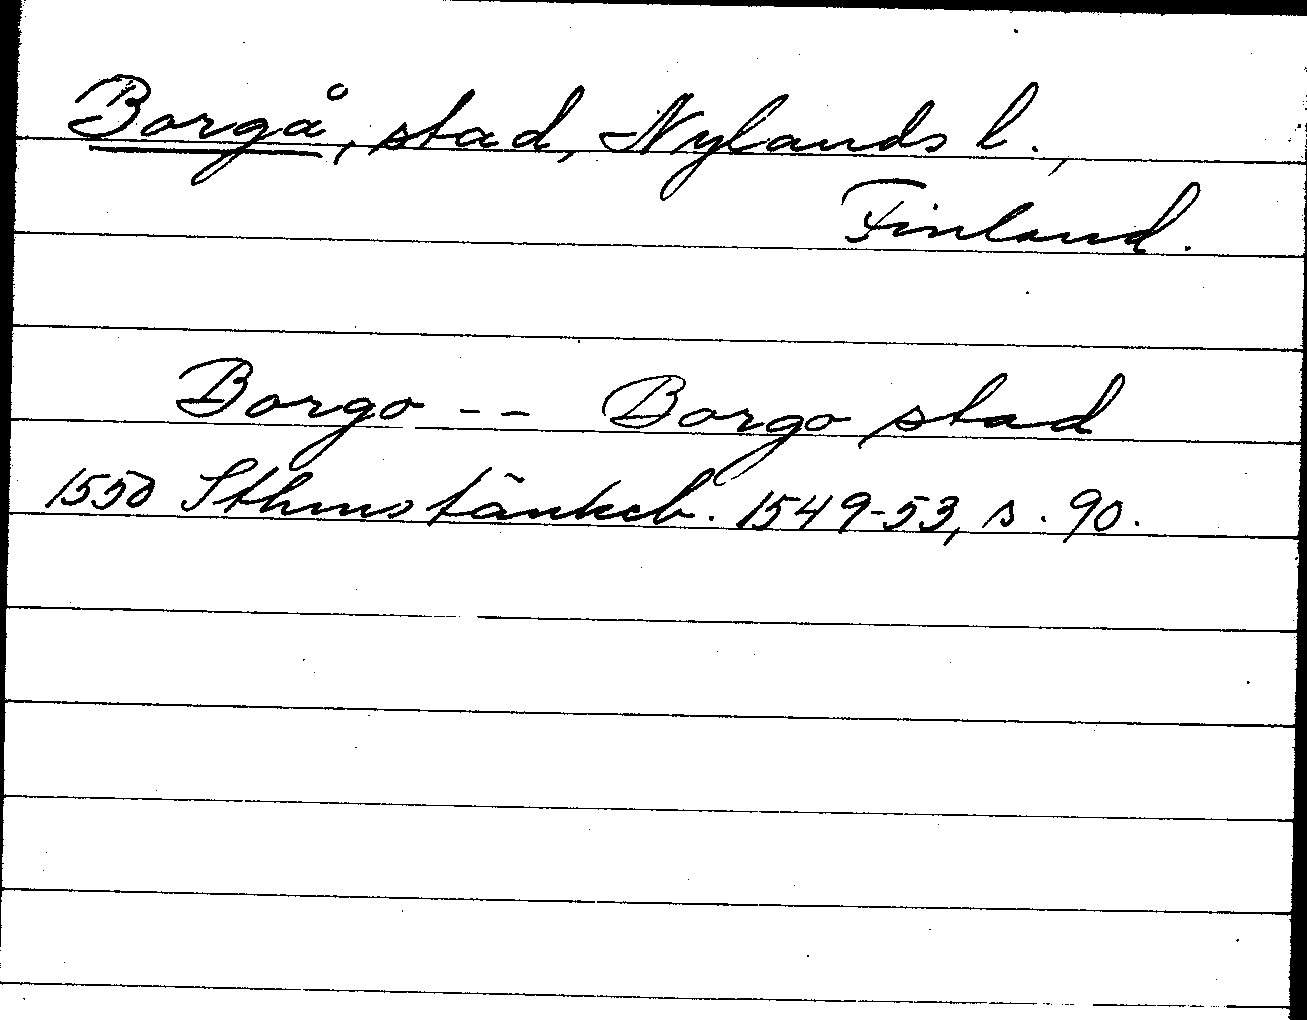 Borgå, stad, Nylands l.,
Finland.
Borgo -- Borgo stad
1550 Sthms tänkeb. 1549-53, s. 90.